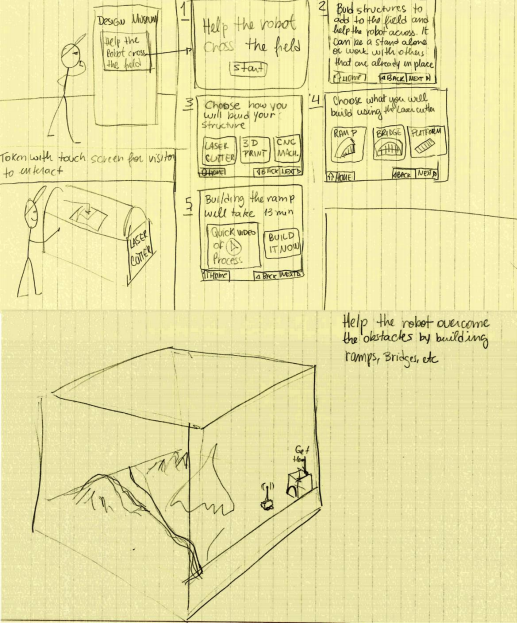 DESIGN MUSEUM
Help the
Robot cross
the field
1
Help the robot
cross the field
Start
2
Buid structures to
add to the field and
help the robot across. It
can be a stand alone
or work with others
that are already in place
↑ HOME
◁ BACK
NEXT ▷
3
Choose how you
will build your
structure
LASER
CUTTER
3D
PRINT
CNC
MACH.
↑ HOME
◁ BACK
NEXT ▷
4
Choose what you will
build using the laser cutter
RAMP
BRIDGE
PLATFORM
↑ HOME
◁ BACK
NEXT ▷
Totem with touch screen for visitor
to interact
LASER
CUTTER
5
Building the ramp
will take 13 min
Quick video
of
Process
BUILD
IT NOW
↑ HOME
◁ BACK
NEXT ▷
Help the robot overcome
the obstacles by building
ramps, Bridges, etc
Get